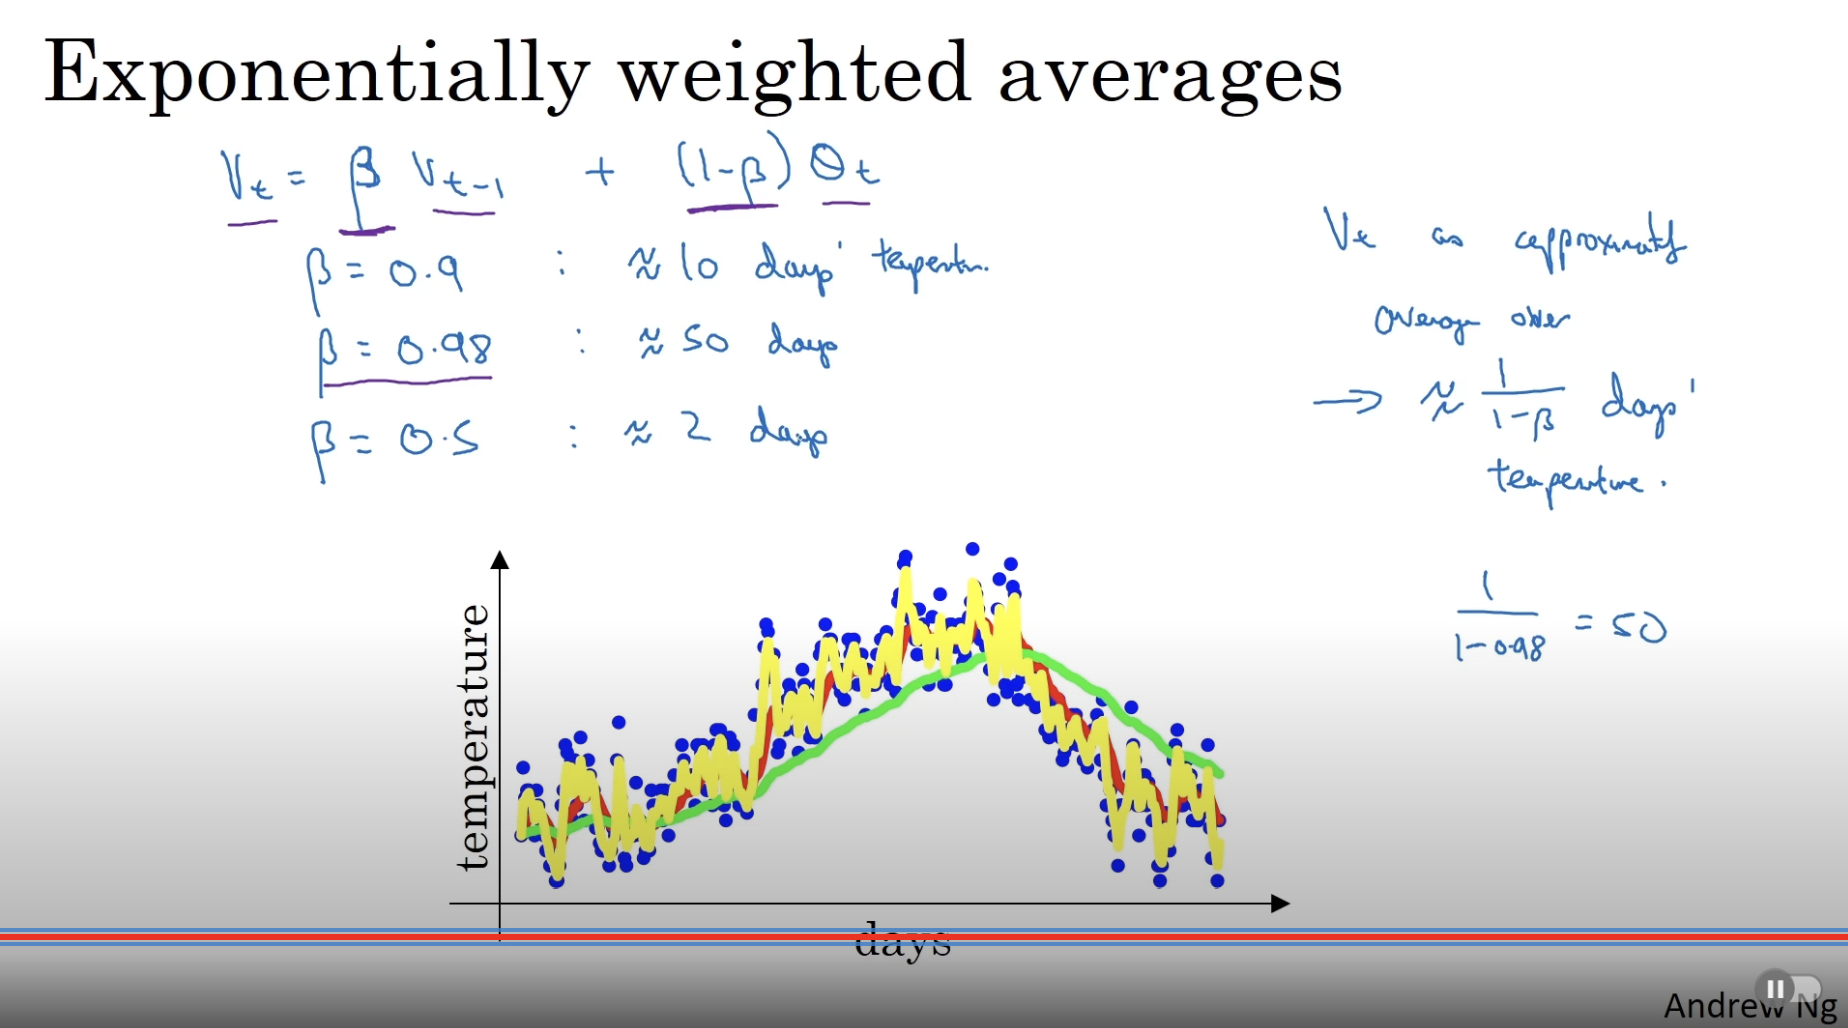 Exponentially weighted averages
Vt = β Vt-1 + (1-β) θt
β = 0.9 : ≈ 10 days' temperature.
β = 0.98 : ≈ 50 days
β = 0.5 : ≈ 2 days
Vt as approximately
average over
→ ≈ 1/(1-β) days'
temperature.
1/(1-0.98) = 50
temperature
days
Andrew Ng